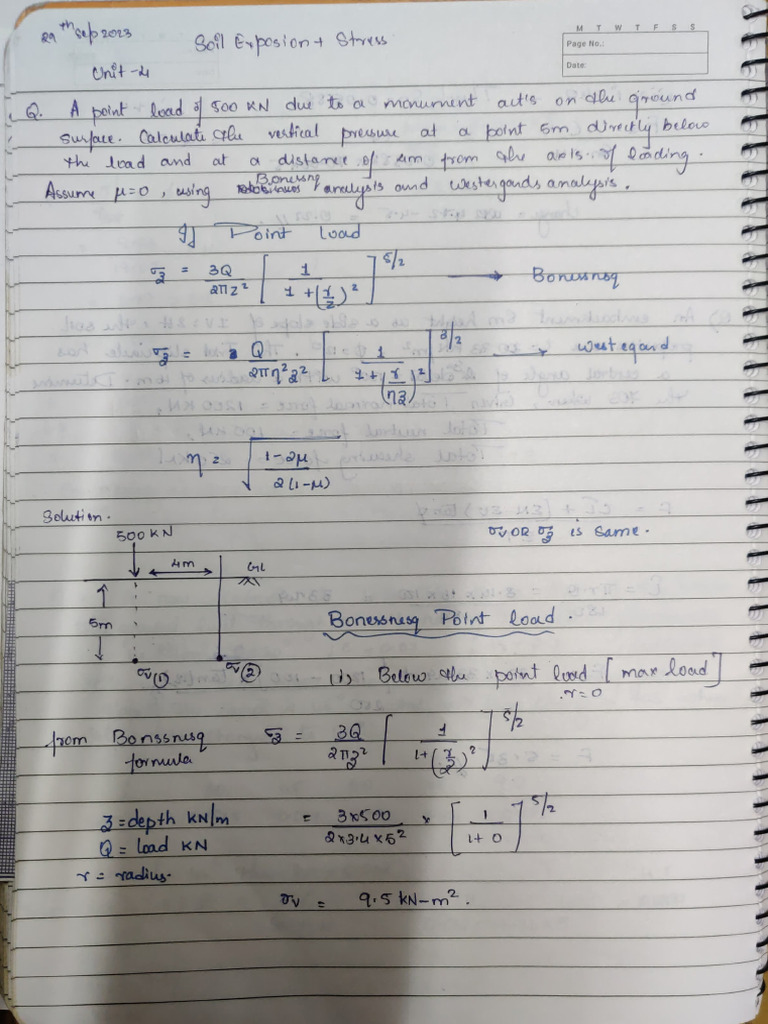 29th Sep 2023
Soil Exposion + Stress
M T W T F S S
Page No.:
Date:
Unit - 4
Q. A point load of 500 KN due to a monument act's on the ground
surface. Calculate the vertical pressure at a point 5m directly below
the load and at a distance of 4m from the axis of loading.
Assume μ=0, using Bonessnq analysis and westergands analysis.
If Point load
σz = 3Q/2πz² [1/1+(r/z)²]^5/2 → Bonessnesq
σz = Q/2πη²z² . [1/1+(r/ηz)²]^3/2 → westegand
η = √(1-2μ/2(1-μ))
Solution.
σv OR σz is same.
500 KN
4m
GL
5m
σv① σv②
Bonessnesq Point load.
(i) Below the point load [max load]
r=0
from Bonssnesq formula σz = 3Q/2πz² [1/1+(r/z)²]^5/2
z = depth kN/m = 3×500/2×3.4×5² × [1/1+0]^5/2
Q = load KN
r = radius.
σv = 9.5 kN-m².